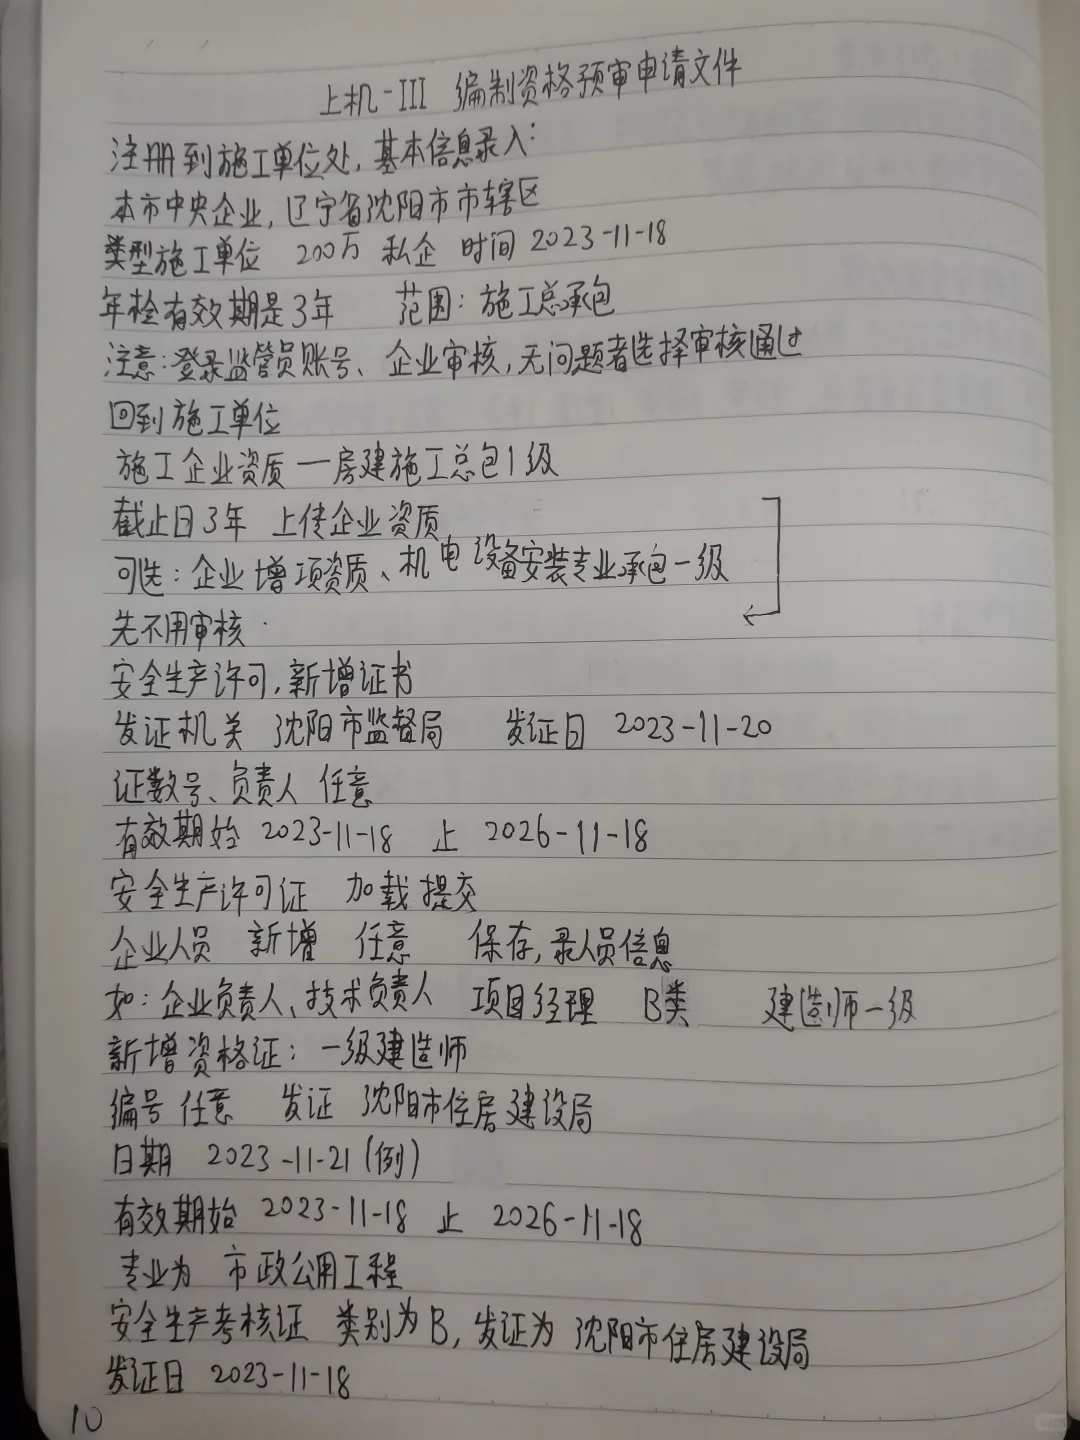 上机-III 编制资格预审申请文件
注册到施工单位处,基本信息录入:
本市中央企业,辽宁省沈阳市市辖区
类型施工单位 200万 私企 时间 2023-11-18
年检有效期是3年 范围:施工总承包
注意:登录监管员账号、企业审核,无问题者选择审核通过
回到施工单位
施工企业资质一房建施工总包1级
截止日3年 上传企业资质
可选:企业增项资质、机电设备安装专业承包一级
先不用审核
安全生产许可,新增证书
发证机关 沈阳市监督局 发证日 2023-11-20
证数号、负责人 任意
有效期始 2023-11-18 止 2026-11-18
安全生产许可证 加载提交
企业人员 新增 任意 保存,录人员信息
如:企业负责人、技术负责人 项目经理 B类 建造师一级
新增资格证:一级建造师
编号 任意 发证 沈阳市住房建设局
日期 2023-11-21(例)
有效期始 2023-11-18 止 2026-11-18
专业为 市政公用工程
安全生产考核证 类别为B,发证为 沈阳市住房建设局
发证日 2023-11-18
10